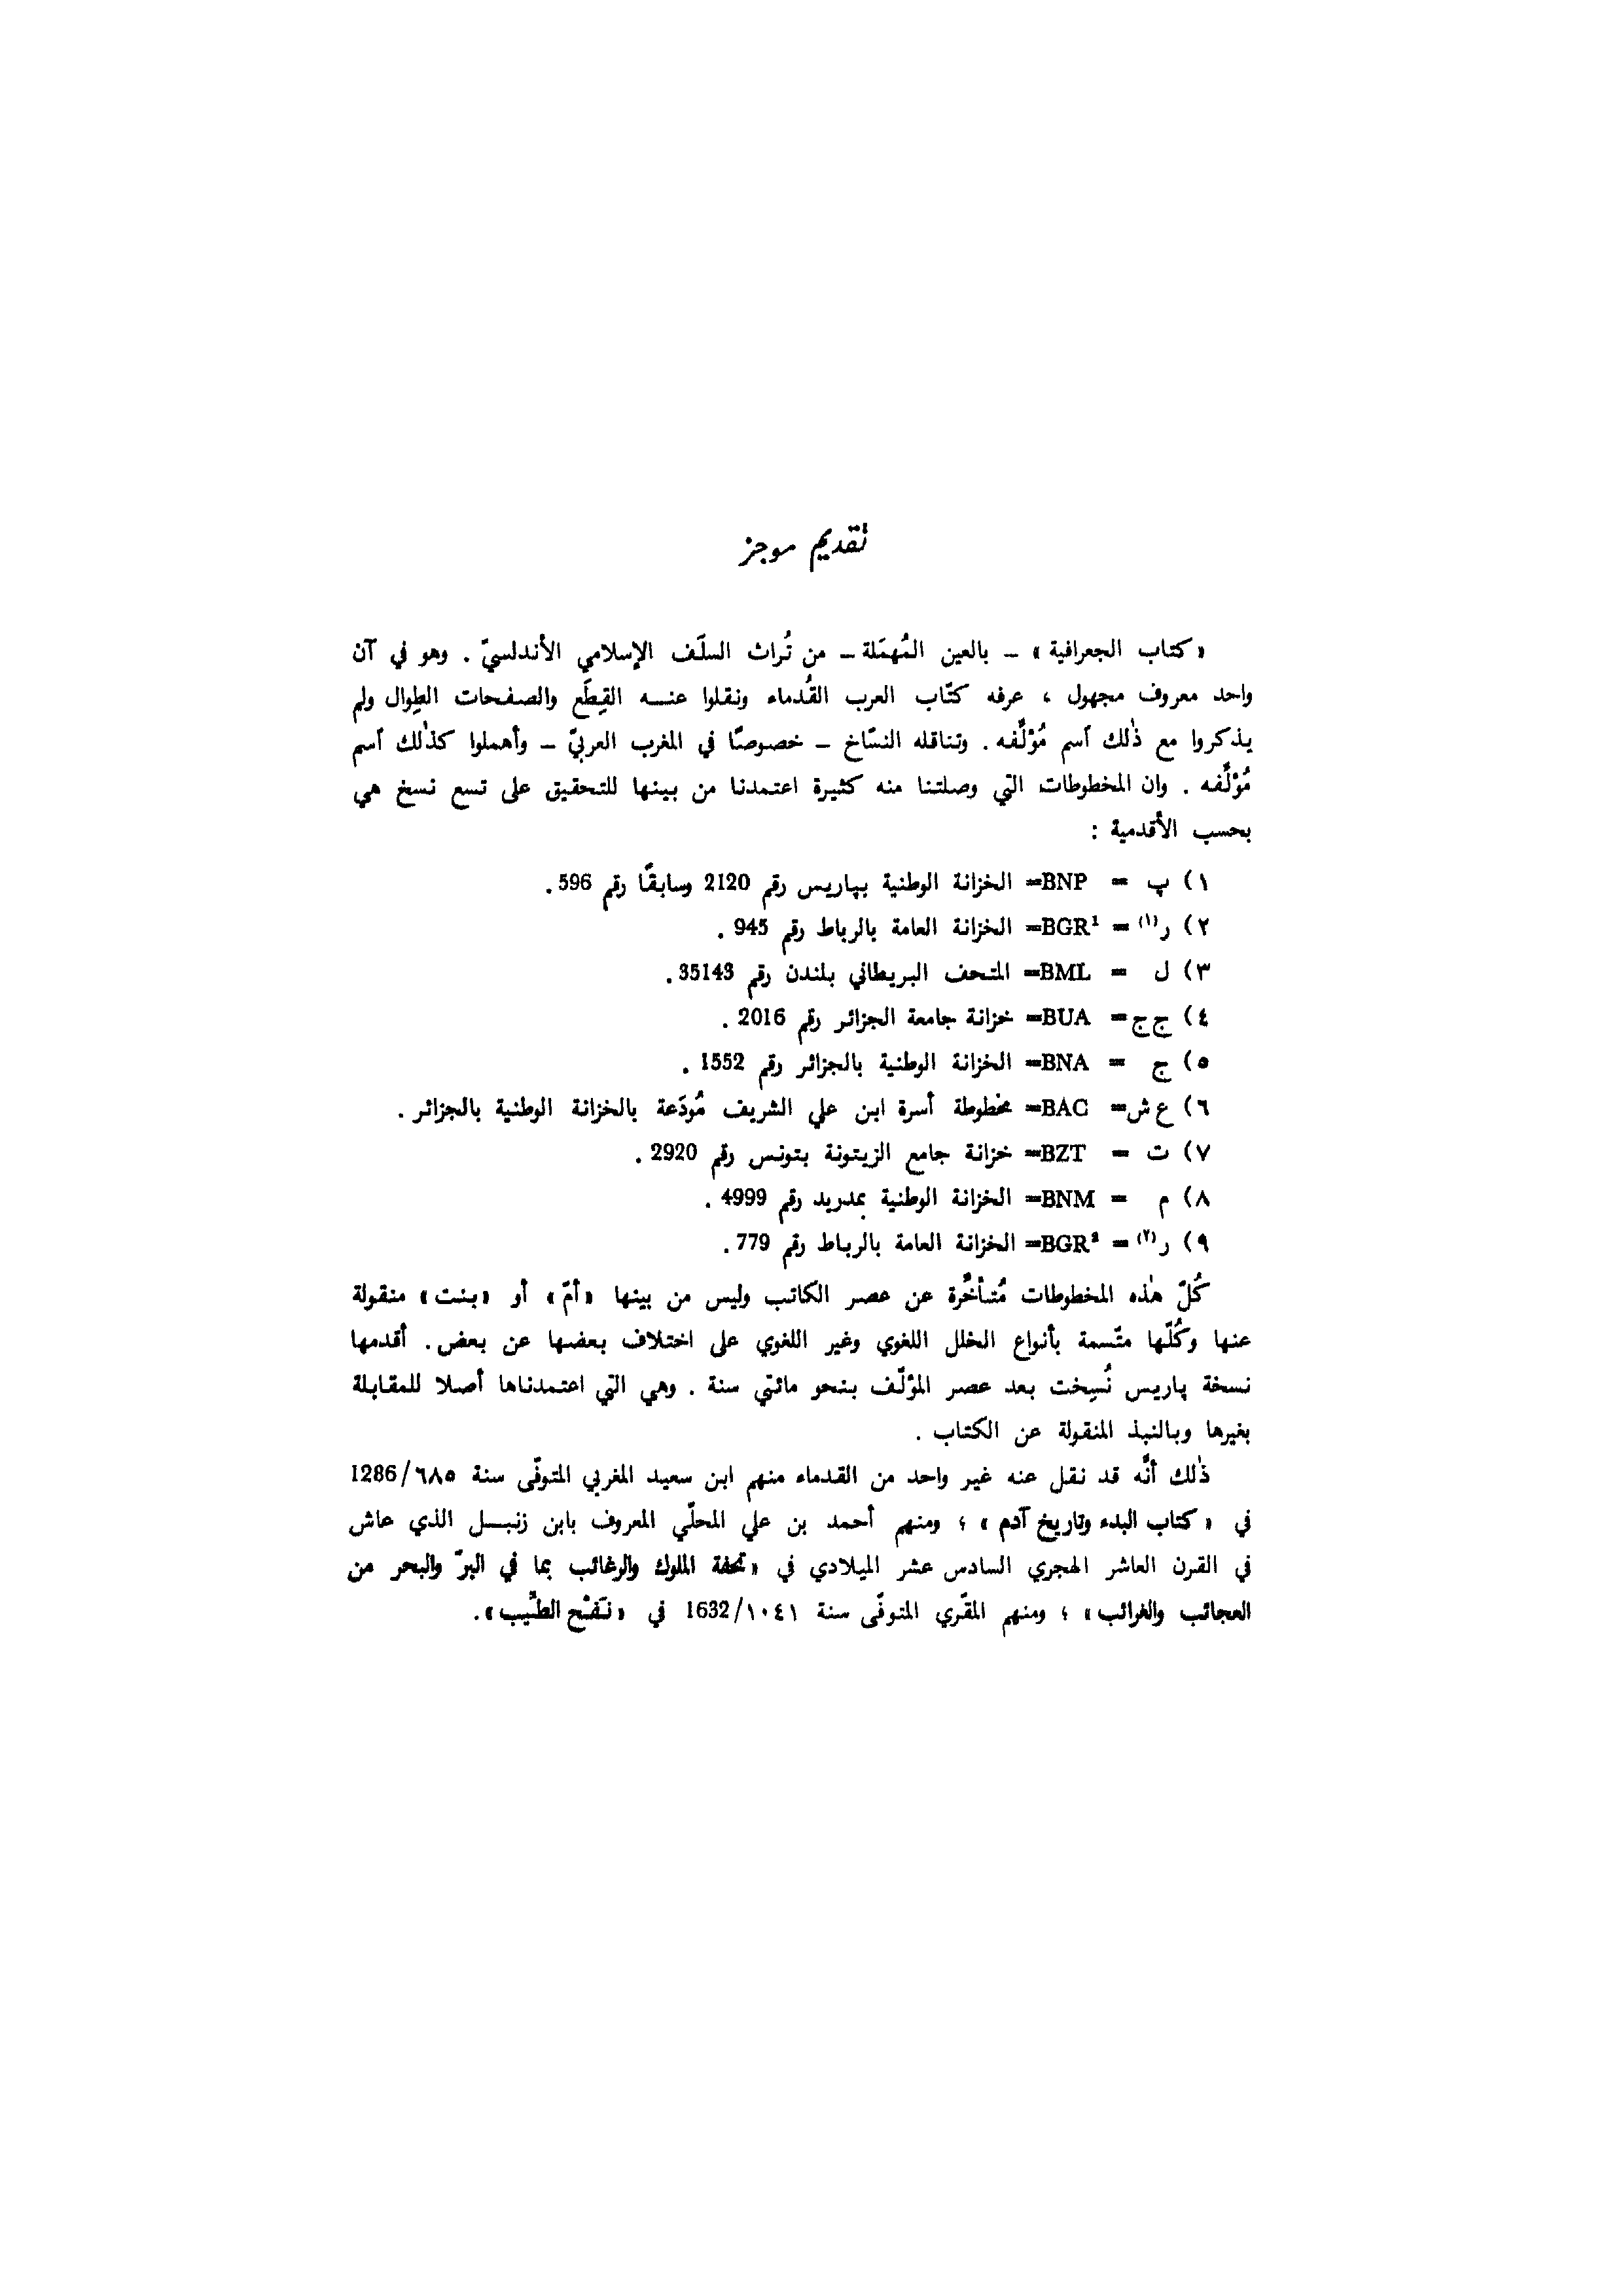 تقديم موجز
«كتاب الجعرافية» – بالعين المُهمَلة – من تُراث السلَف الإسلامي الأندلسيّ . وهو في آن
واحد معروف مجهول ، عرفه كتّاب العرب القُدماء ونقلوا عنه القِطَع والصفحات الطِوال ولم
يذكروا مع ذٰلك آسم مُؤلِّفه . وتناقله النسّاخ – خصوصًا في المغرب العربيّ – وأهملوا كذٰلك آسم
مُؤلِّفه . وان المخطوطات التي وصلتنا منه كثيرة اعتمدنا من بينها للتحقيق على تسع نسخ هي
بحسب الأقدمية :
١) پ = BNP= الخزانة الوطنية بپاريس رقم 2120 وسابقًا رقم 596 .
٢) ر(١) = BGR¹= الخزانة العامة بالرباط رقم 945 .
٣) ل = BML= المتحف البريطاني بلندن رقم 35143 .
٤) ج ج = BUA= خزانة جامعة الجزائر رقم 2016 .
٥) ج = BNA= الخزانة الوطنية بالجزائر رقم 1552 .
٦) ع ش = BAC= مخطوطة أسرة ابن علي الشريف مُودَعة بالخزانة الوطنية بالجزائر .
٧) ت = BZT= خزانة جامع الزيتونة بتونس رقم 2920 .
٨) م = BNM= الخزانة الوطنية بمدريد رقم 4999 .
٩) ر(٢) = BGR²= الخزانة العامة بالرباط رقم 779 .
كُلّ هٰذه المخطوطات مُتأخِّرة عن عصر الكاتب وليس من بينها «أمّ» أو «بنت» منقولة
عنها وكُلّها متّسمة بأنواع الخلل اللغوي وغير اللغوي على اختلاف بعضها عن بعض . أقدمها
نسخة پاريس نُسِخت بعد عصر المؤلّف بنحو مائتي سنة . وهي التي اعتمدناها أصلا للمقابلة
بغيرها وبالنبذ المنقولة عن الكتاب .
ذٰلك أنَّه قد نقل عنه غير واحد من القدماء منهم ابن سعيد المغربي المتوفّى سنة ٦٨٥/1286
في «كتاب البدء وتاريخ آدم» ؛ ومنهم أحمد بن علي المحلّي المعروف بابن زنبل الذي عاش
في القرن العاشر الهجري السادس عشر الميلادي في «تحفة الملوك والرغائب بما في البرّ والبحر من
العجائب والغرائب» ؛ ومنهم المقّري المتوفّى سنة ١٠٤١/1632 في «نَفْح الطِّيب» .